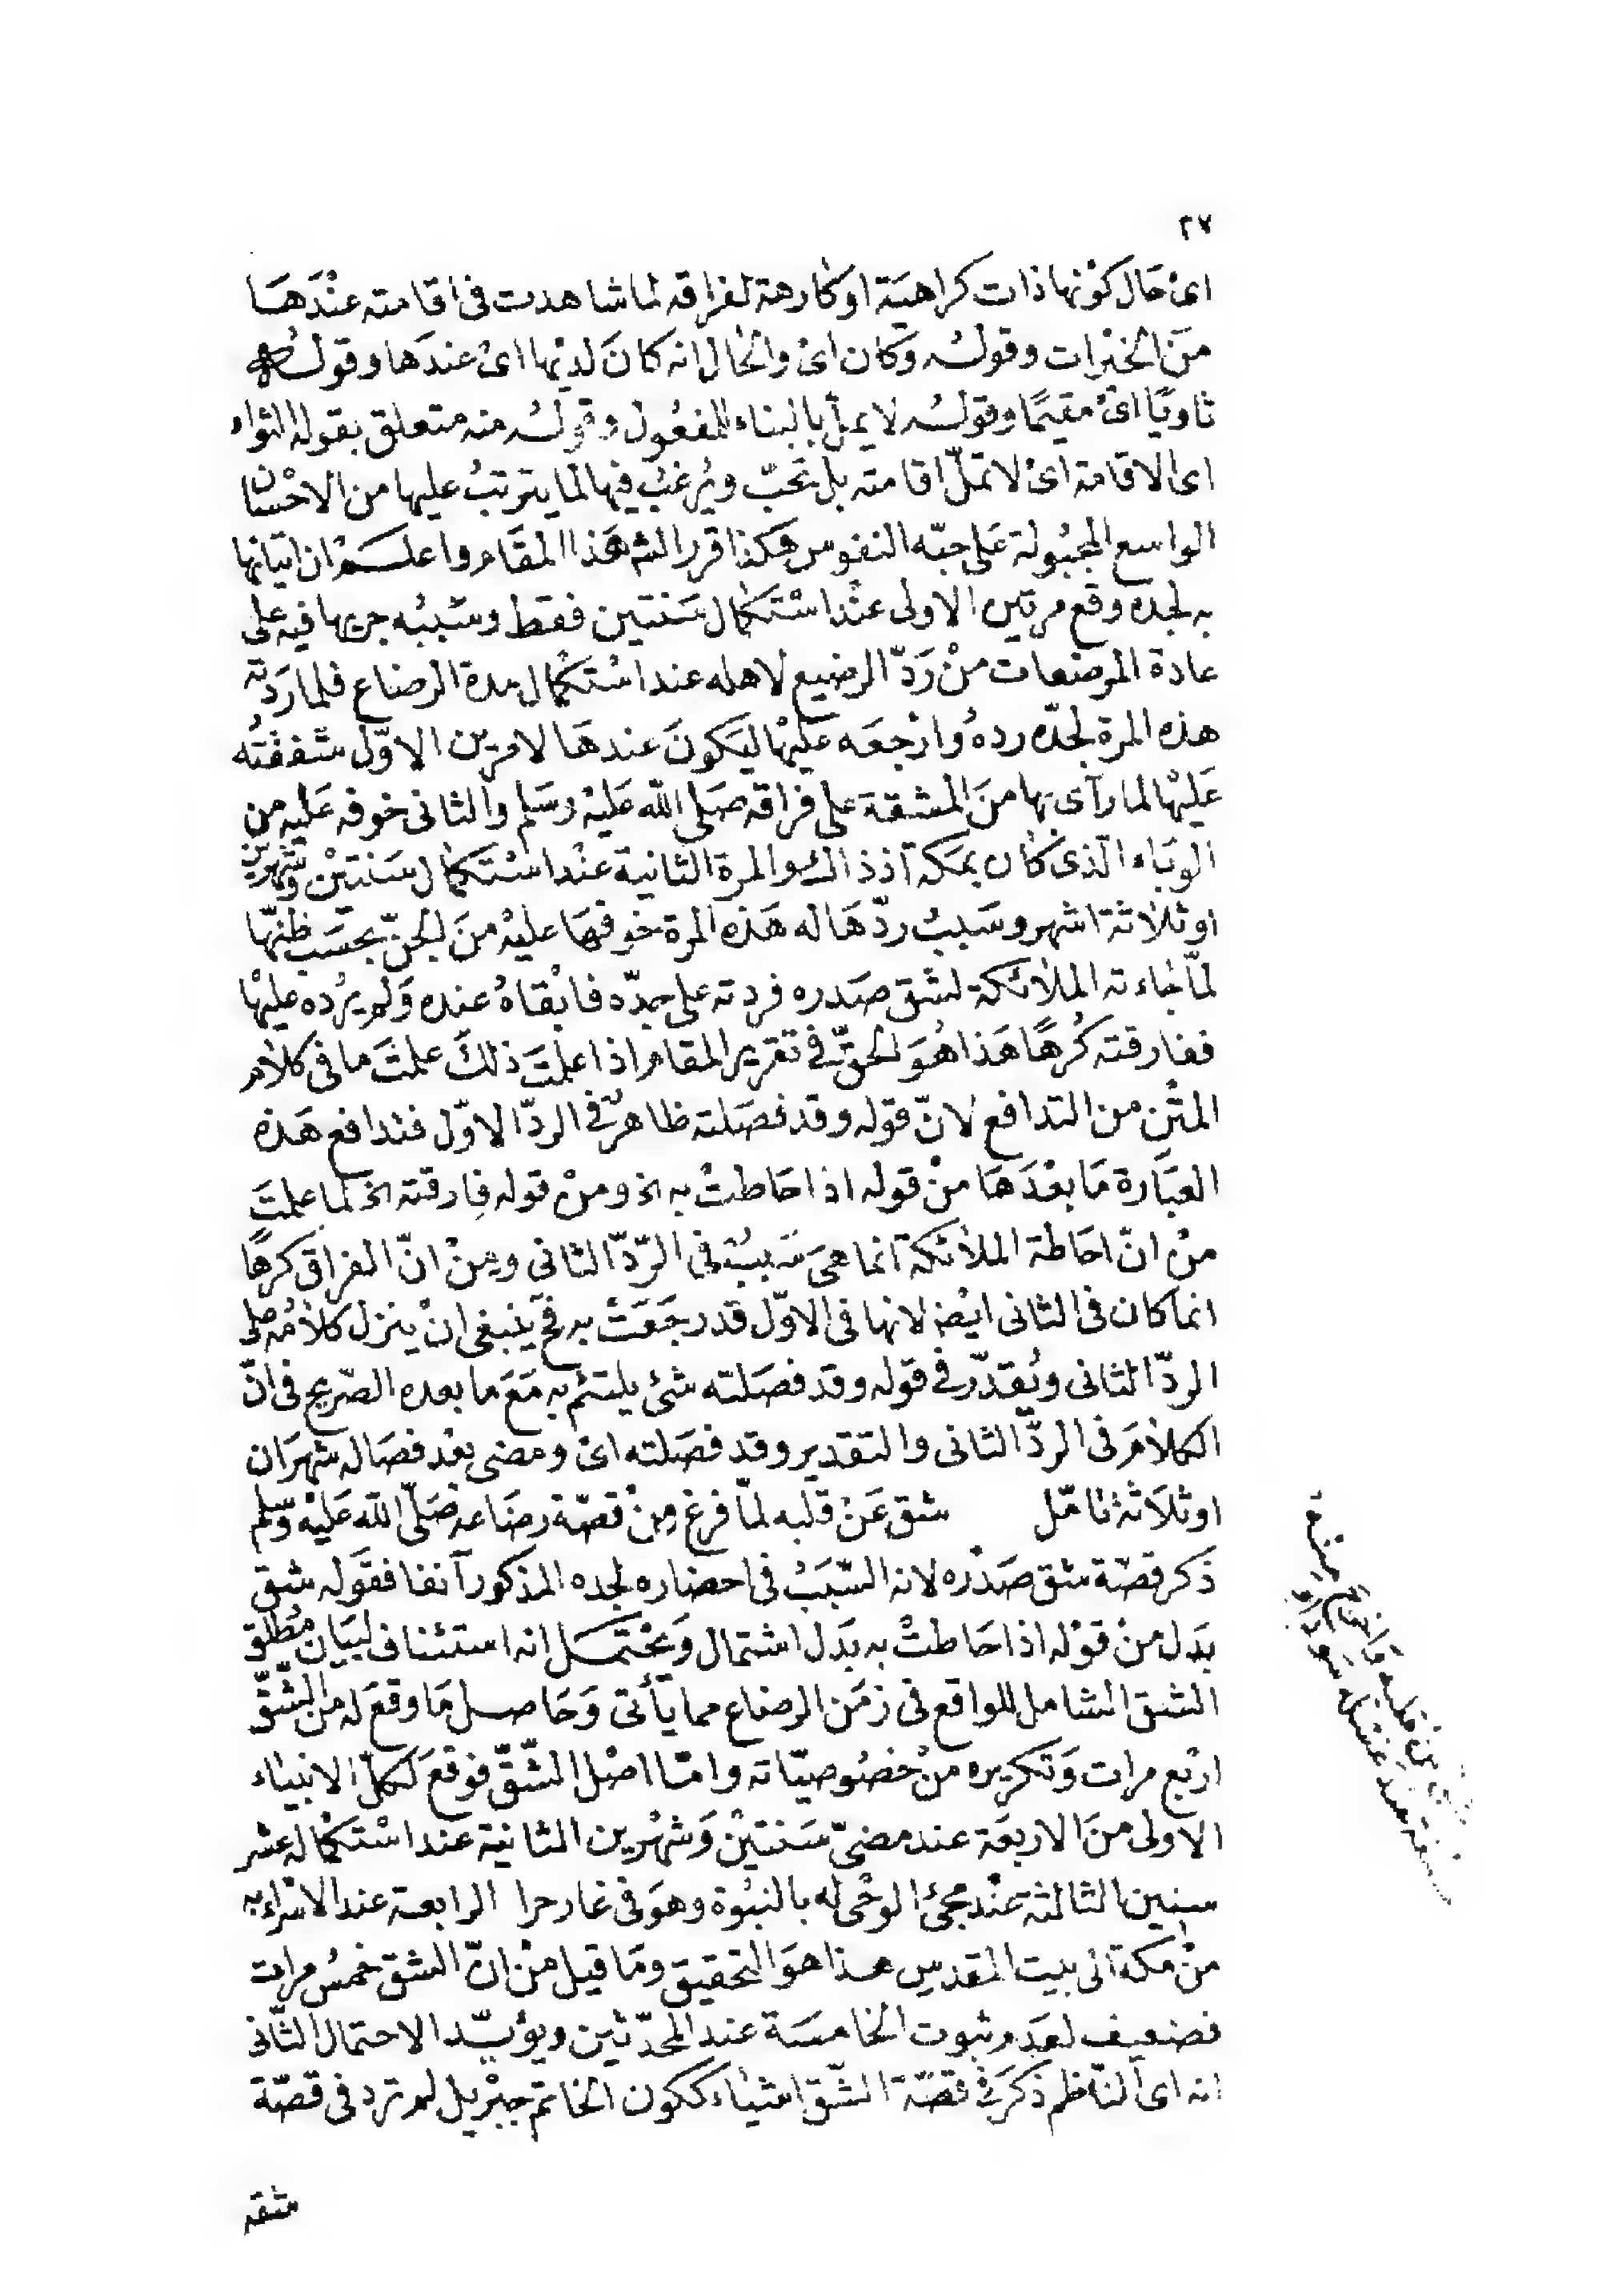 ٢٧
اى حَال كوْنها ذات كراهيَة او كارهة لفراقه لما شاهدت فى اقامته عنْدَهَا
منَ الخيْرات وقولـه وَكان اى والحَال انه كانَ لديْها اىْ عندَها وقولـه
ثاويًا اىْ مقيمًا وقولـه لا يمل بالبناء للمفعُول وقولـه منه متعلق بقوله الثواء
اى الاقامة اىْ لا تملّ اقامته بل تحبّ ويُرغبُ فيها لما يترتبُ عليها من الاحْسان
الواسع المجبُولة عَلى حبّه النفوس هكذا قرر الشم هَذا المقَام واعلـم ان اتيانها
به لجده وقع مرتين الاولى عنْد اسْتكمال سَنتين فقط وسَببُه جريها فيه على
عادة المرضعات منْ رَدّ الرضيع لاهله عند اسْتكمال مدة الرضاع فلما رَدته
هذه المرة لجدّه ردهُ وارْجعَه عَليْها ليَكونَ عندهَا لامرين الاوّل شَفقتُه
عَليْها لما رآى بها منَ المشقة على فراقه صَلى اللّه عَليْه وسَلم والثانى خوفه عَليه من
الوبَاء الّذى كان بمَكة اذ ذاك والمرة الثانية عنْد اسْتكمال سَنتيْن وشهرين
او ثلاثة اشهر وسَببُ ردّهَا له هَذه المرة خوفهَا عليْه منَ الجنّ بحسَب ظنّها
لمّا جَاءته الملائكة لشق صَدره فردته على جدّه فابْقاهُ عنده وَلم يرُده عليْها
ففارقته كُرهًا هَذا هُوَ الحقّ فى تقرير المقام اذا علمتَ ذلكَ علمتَ ما فى كلام
المتْن من التدافع لانّ قوله وقد فصَلته ظاهرٌ فى الردّ الاوّل فتدافع هَذه
العبَارة مَا بعْدَهَا منْ قوله اذ احَاطتْ به الخ ومنْ قوله فارقته الخ لما علمتَ
منْ انّ احَاطة الملائكة انما هىَ سَببُه فى الرّدّ الثانى ومِنْ انّ الفراق كرهًا
انما كان فى الثانى ايْضا لانها فى الاوّل قد رجَعَتْ به فح ينبغى انْ ينزل كلامُه على
الردّ الثانى ويُقدّر فى قوله وقد فصَلته شئ يلتئم به مَعَ ما بعده الصّريح فى انّ
الكلامَ فى الردّ الثانى والتقدير وقد فصَلته اىْ ومضى بعْد فصَاله شهرَان
او ثلاثة تامّل شق عَنْ قلبه لمّا فرغ مِنْ قصّة رضَاعه صَلّى اللّه عَليْه وَسّلم
ذكر قصّة شق صَدْره لانه السّبَبُ فى احضاره لجده المذكور آنفا فقوله شق
بَدل منْ قوْله اذ احَاطتْ به بَدل اشتمال وَيحْتمـل انه استئناف لبيَان مُطلق
الشق الشامل للواقع فى زمَن الرضاع مما يأتى وَحَاصـل مَا وقعَ له من الشّق
ارْبع مرات وَتكريره منْ خصُوصيّاته وامّا اصْل الشّقّ فوقع لكلّ الانبياء
الاولى منَ الاربعَة عند مضىّ سَنتيْن وَشهْرين الثانية عند اسْتكماله عشر
سنين الثالثة عنْد مجئ الوحْى له بالنبُوة وهوَ فى غار حرا الرابعة عند الاسْراء به
منْ مَكة الى بيت المقدس هـذا هوَ التحقيق ومَا قيل منْ انّ الشق خمسُ مرات
فضعيف لعدَم ثبوت الخامسَة عند المحدّثين ويؤيّـد الاحتمال الثّانى
انه اى النّاظم ذكرَ فى قصّة الشّق اشياء ككون الخاتم جبْريل لم ترد فى قصّة
شقه